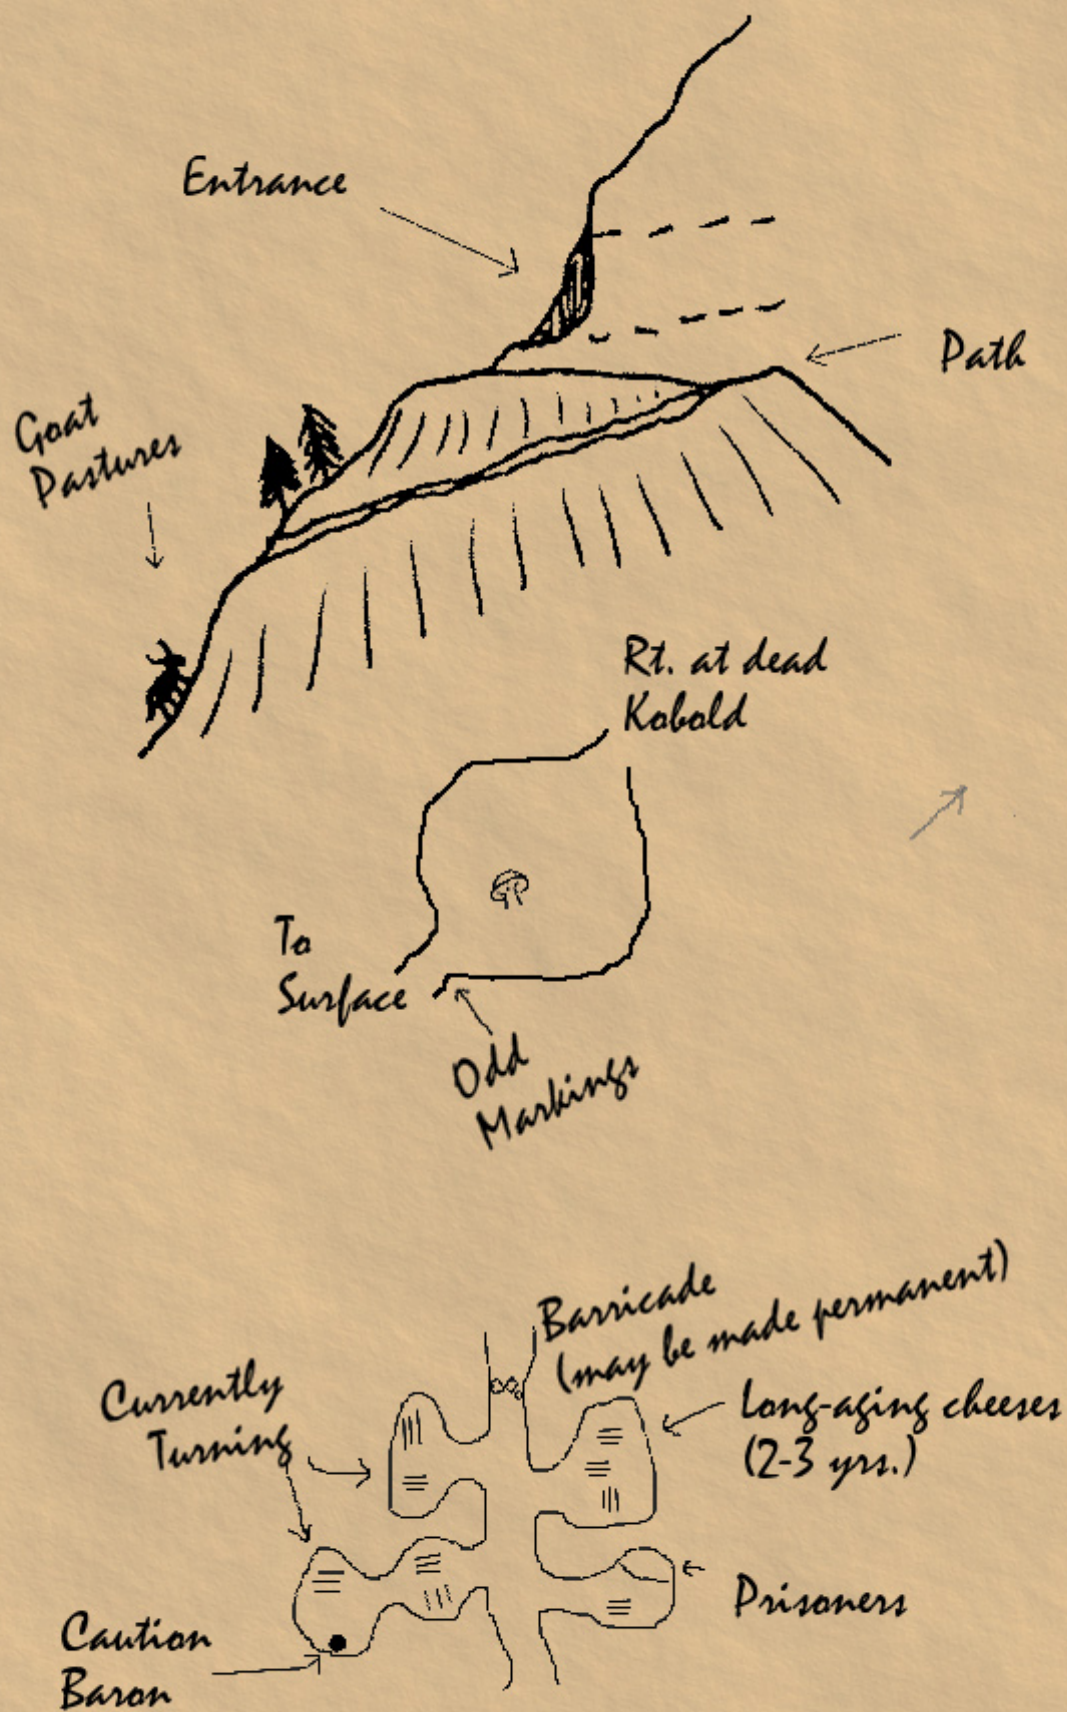 Entrance
Path
Goat
Pastures
Rt. at dead
Kobold
To
Surface
Odd
Markings
Barricade
(may be made permanent)
Currently
Turning
Long-aging cheeses
(2-3 yrs.)
Prisoners
Caution
Baron